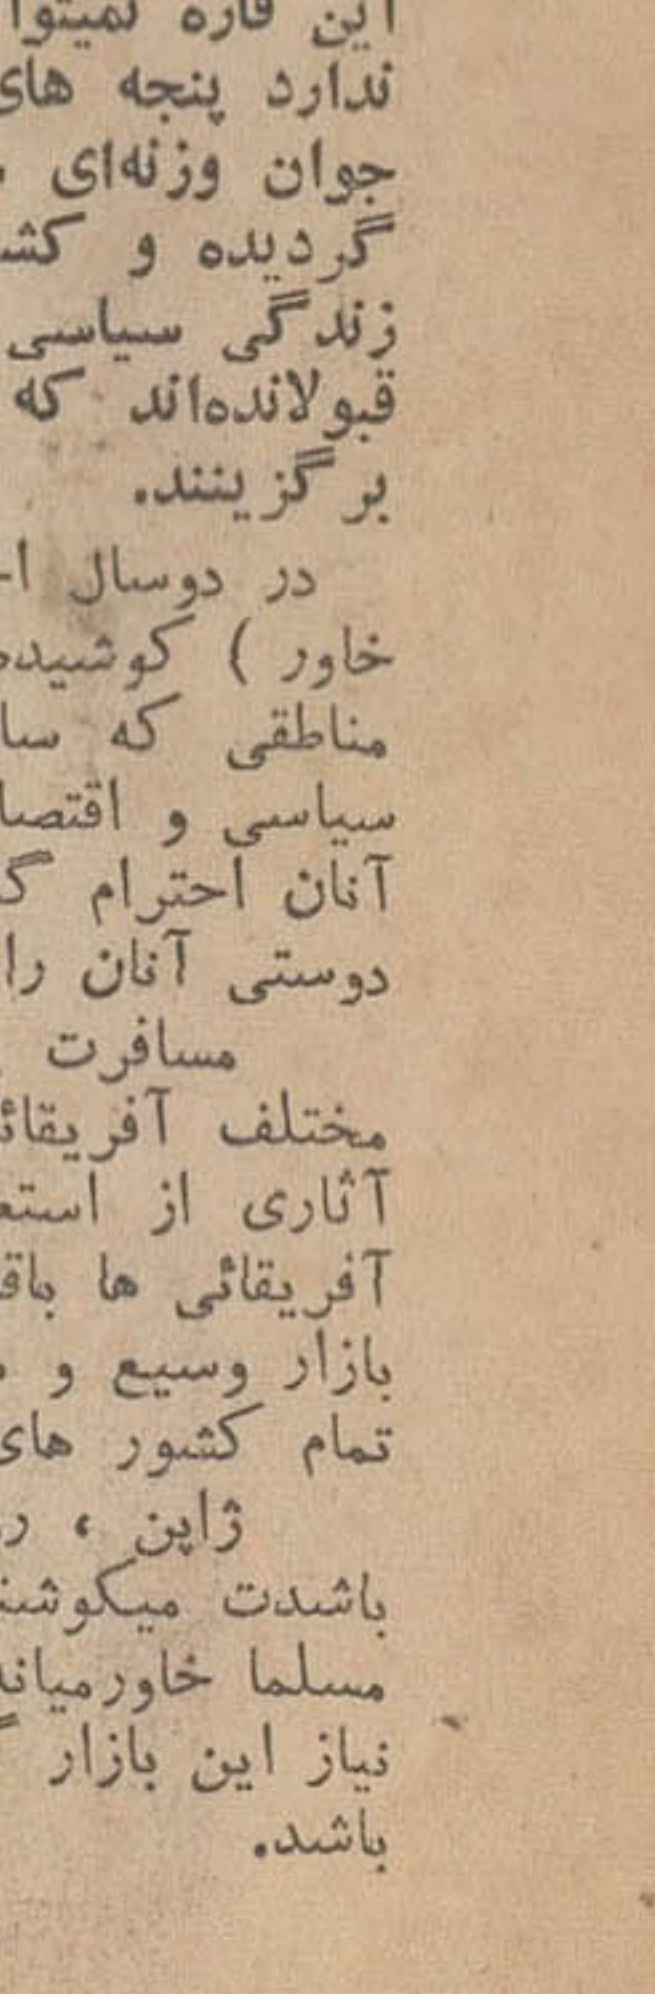 این قاره نمیتوا
ندارد پنجه های
جوان وزنه‌ای
گردیده و کش
زندگی سیاسی
قبولانده‌اند که
برگزینند.
در دوسال ا
خاور ) کوشیده
مناطقی که سا
سیاسی و اقتصا
آنان احترام گ
دوستی آنان را
مسافرت
مختلف آفریقائ
آثاری از استع
آفریقائی ها باق
بازار وسیع و
تمام کشور های
ژاپن ، ر
باشدت میکوشن
مسلما خاورمیان
نیاز این بازار
باشد.